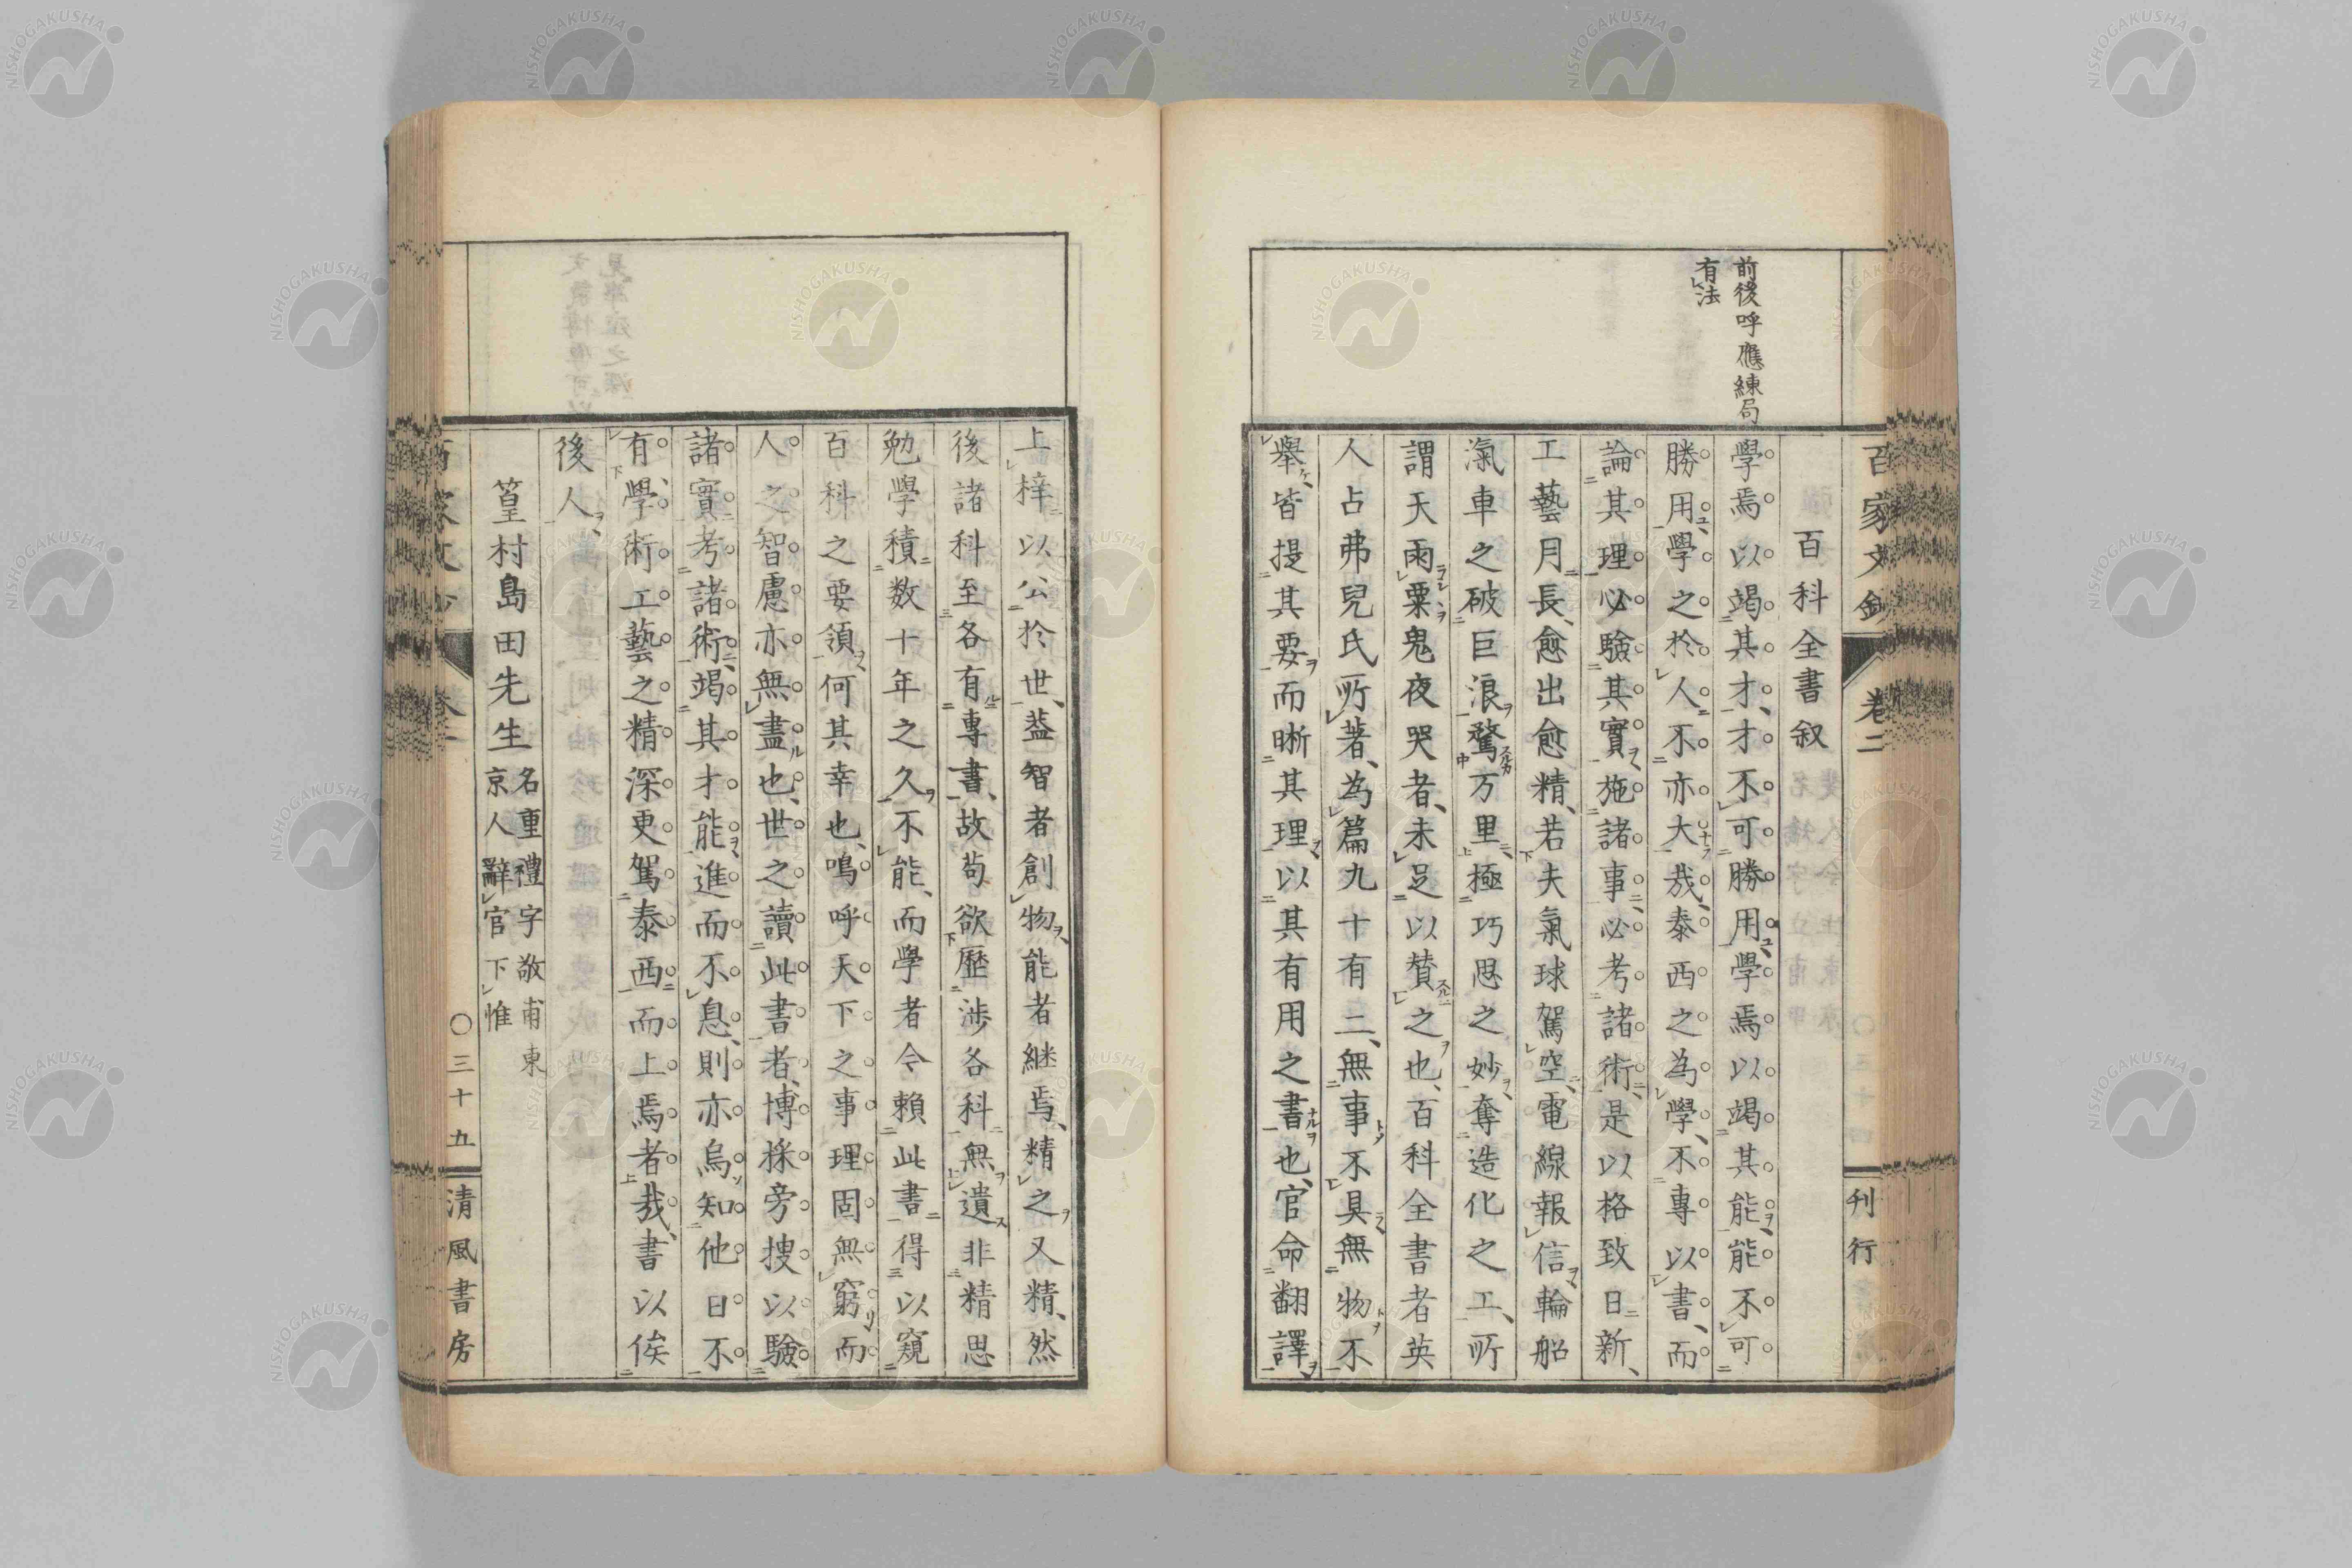 百家文鈔
卷二
刊行
前後呼應練局
有法
百科全書叙
學焉以竭其才、才不可勝用、學焉以竭其能、能不可
勝用、學之於人不亦大哉、泰西之為學、不專以書、而
論其理必驗其實、施諸事、必考諸術、是以格致日新、
工藝月長、愈出愈精、若夫氣球駕空、電線報信、輪船
滊車之破巨浪驁方里、極巧思之妙、奪造化之工、所
謂天雨粟鬼夜哭者、未足以賛之也、百科全書者英
人占弗兒氏所著、為篇九十有二、無事不具、無物不
舉、皆提其要而晰其理、以其有用之書也、官命翻譯、
上梓以公於世、蓋智者創物、能者継焉、精之又精、然
後諸科至各有專書、故苟欲歷渉各科無遺、非精思
勉學積数十年之久、不能、而學者今賴此書得以窺
百科之要領、何其幸也、嗚呼天下之事理固無窮、而
人之智慮亦無盡也、世之讀此書者、博採旁搜以驗
諸實考諸術、竭其才能、進而不息、則亦烏知他日不
有學術工藝之精深更駕泰西而上焉者哉、書以俟
後人、
篁村島田先生
名重禮字敬甫東
京人辭官下惟
〇三十五
清風書房